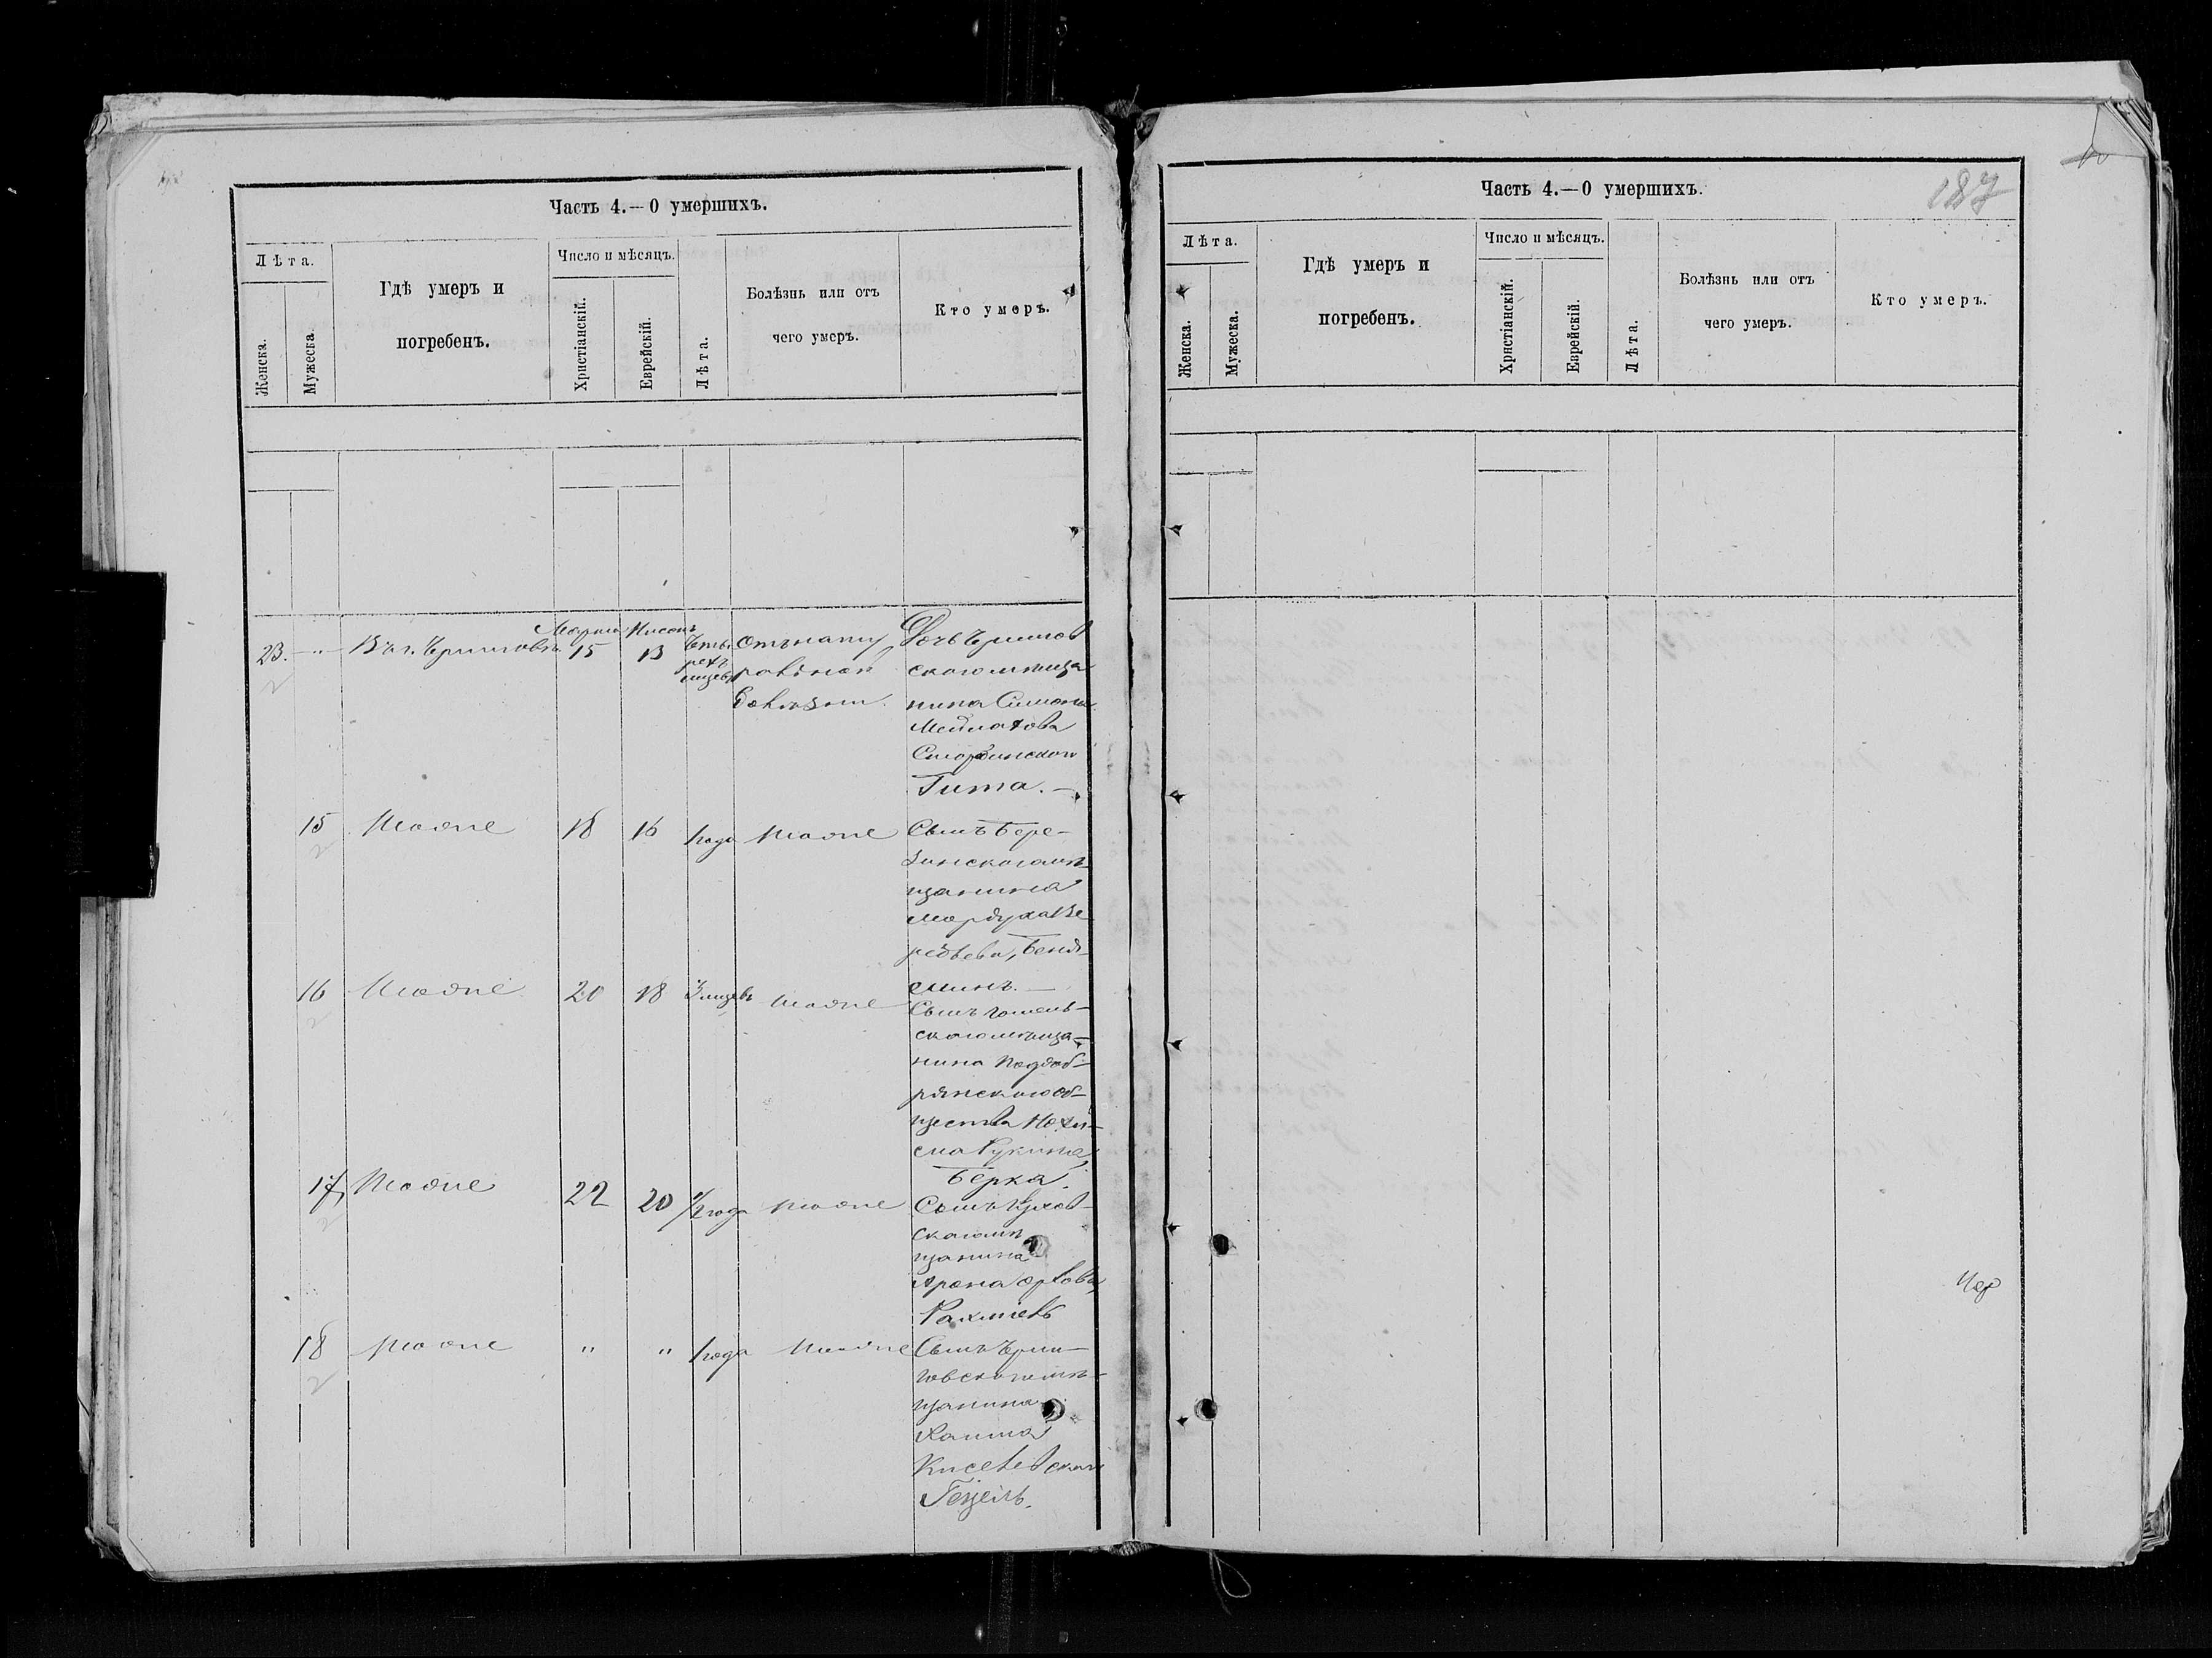 Часть 4.—О умершихъ.
Лѣта.
Женска.
Мужеска.
Гдѣ умеръ и
погребенъ.
Число и мѣсяцъ.
Христіанскій.
Еврейскій.
Лѣта.
Болѣзнь или отъ
чего умеръ.
Кто умеръ.
23. — " — Въ г. Черниговѣ Марта 15 Нисонъ 13
Четы
рехъ
месяц
отъ нату
ральной
болѣзни.
Дочь Чернигов
скаго мѣща
нина Симона
Смординского
Гита. —
15 тоже 18 16 1 года тоже
Сынъ Бере-
зинскаго мѣ
щанина
Мордуха Ве
Беня-
минъ. —
16 тоже 20 18 3 месяц тоже
Сынъ Гомель-
скаго мѣща-
нина Поддоб-
рянского об-
щества Нохи-
ма Рукина,
Берка.
17 тоже 22 20 1/2 года тоже
Сынъ
скаго мѣ
щанина
Арона Орлова,
Рахміель
18 тоже " " 1 года тоже
Сынъ Черни-
говского мѣ-
щанина
Хаима
Киселевскаго
Гецель.
Часть 4.—О умершихъ.
187
Лѣта.
Женска.
Мужеска.
Гдѣ умеръ и
погребенъ.
Число и мѣсяцъ.
Христіанскій.
Еврейскій.
Лѣта.
Болѣзнь или отъ
чего умеръ.
Кто умеръ.